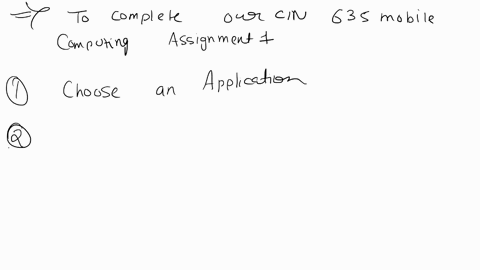 => To complete our CIN 635 mobile
Computing Assignment 1
① Choose an Application
②